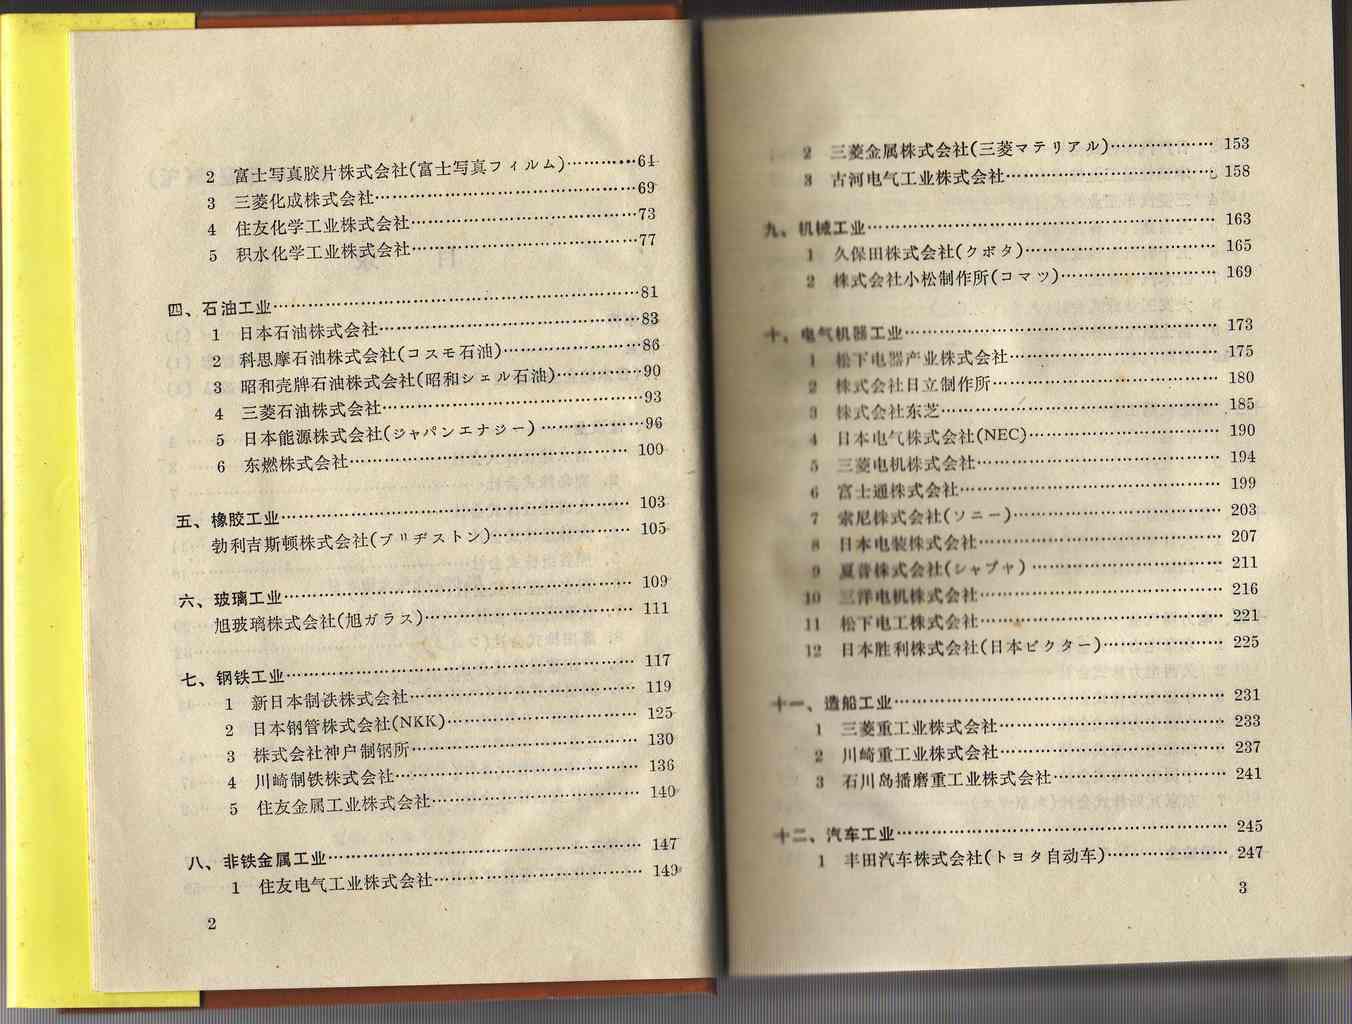 2 富士写真胶片株式会社(富士写真フィルム)…………64
3 三菱化成株式会社…………69
4 住友化学工业株式会社…………73
5 积水化学工业株式会社…………77
四、石油工业…………81
1 日本石油株式会社…………83
2 科思摩石油株式会社(コスモ石油)…………86
3 昭和壳牌石油株式会社(昭和シェル石油)…………90
4 三菱石油株式会社…………93
5 日本能源株式会社(ジャパンエナジー)…………96
6 东燃株式会社…………100
五、橡胶工业…………103
勃利吉斯顿株式会社(ブリヂストン)…………105
六、玻璃工业…………109
旭玻璃株式会社(旭ガラス)…………111
七、钢铁工业…………117
1 新日本制铁株式会社…………119
2 日本钢管株式会社(NKK)…………125
3 株式会社神户制钢所…………130
4 川崎制铁株式会社…………136
5 住友金属工业株式会社…………140
八、非铁金属工业…………147
1 住友电气工业株式会社…………149
2
2 三菱金属株式会社(三菱マテリアル)…………153
3 古河电气工业株式会社…………158
九、机械工业…………163
1 久保田株式会社(クボタ)…………165
2 株式会社小松制作所(コマツ)…………169
十、电气机器工业…………173
1 松下电器产业株式会社…………175
2 株式会社日立制作所…………180
3 株式会社东芝…………185
4 日本电气株式会社(NEC)…………190
5 三菱电机株式会社…………194
6 富士通株式会社…………199
7 索尼株式会社(ソニー)…………203
8 日本电装株式会社…………207
9 夏普株式会社(シャプャ)…………211
10 三洋电机株式会社…………216
11 松下电工株式会社…………221
12 日本胜利株式会社(日本ビクター)…………225
十一、造船工业…………231
1 三菱重工业株式会社…………233
2 川崎重工业株式会社…………237
3 石川岛播磨重工业株式会社…………241
十二、汽车工业…………245
1 丰田汽车株式会社(トヨタ自动车)…………247
3